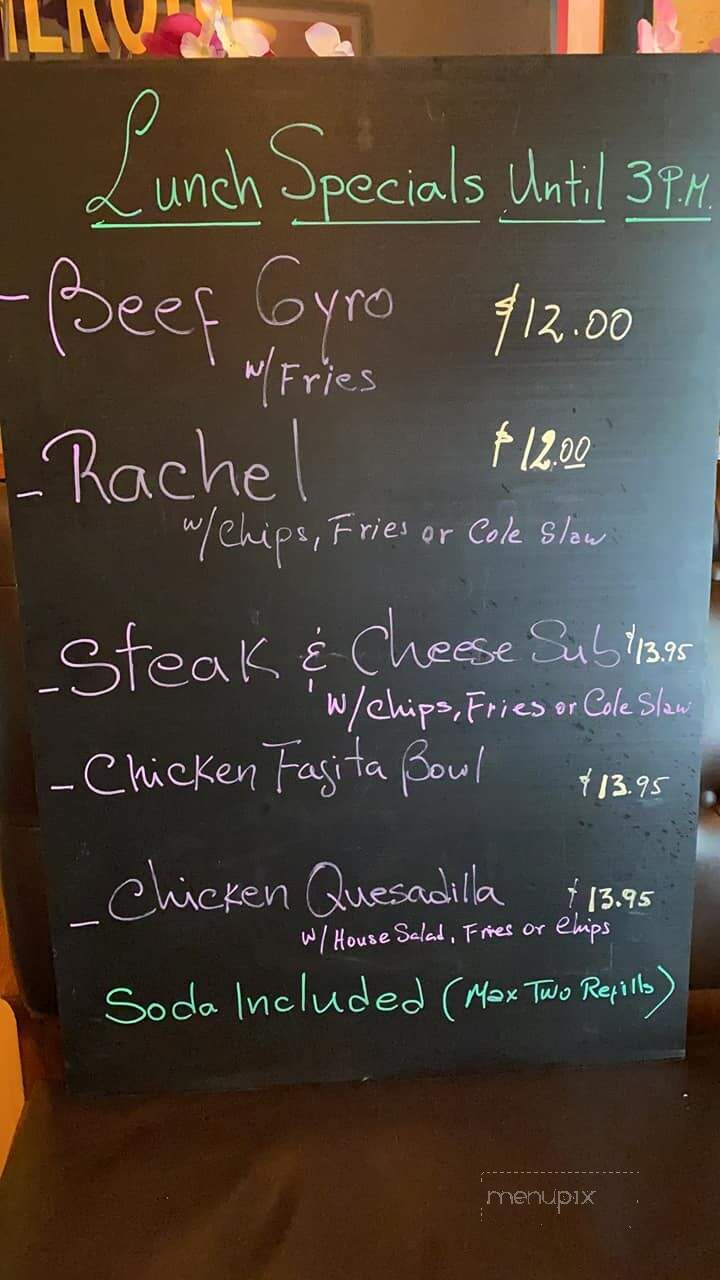 Lunch Specials Until 3 P.M.
- Beef Gyro $12.00
w/ Fries
- Rachel $12.00
w/ Chips, Fries or Cole Slaw
- Steak & Cheese Sub $13.95
w/ Chips, Fries or Cole Slaw
- Chicken Fajita Bowl $13.95
- Chicken Quesadilla $13.95
w/ House Salad, Fries or Chips
Soda Included (Max Two Refills)
menupix